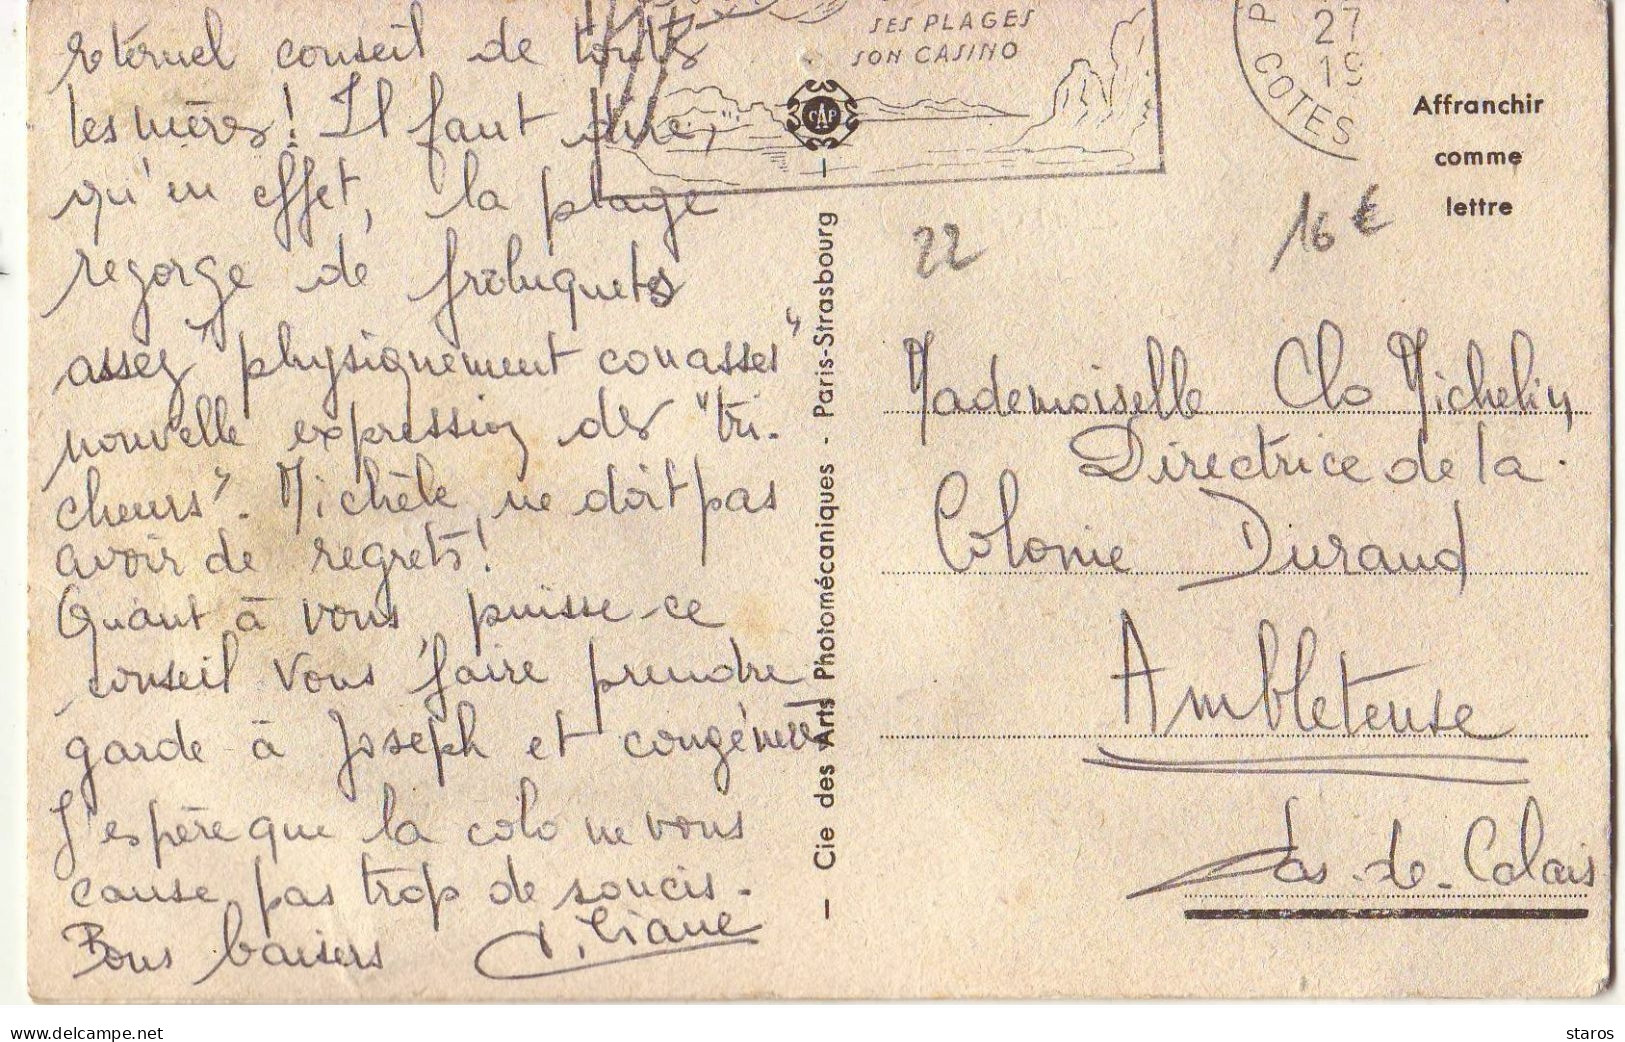 éternel conseil de toutes
les mères! Il faut dire,
qu'en effet, la plage
regorge de freluquets
assez "physiquement conasses"
nouvelle expression des "tri-
cheurs". Michèle ne doit pas
avoir de regrets!
Quant à vous, puisse-ce
conseil vous faire prendre
garde à Joseph et congénères
J'espère que la colo ne vous
cause pas trop de soucis.
Bons baisers Liliane
SES PLAGES
SON CASINO
CAP
27
19
COTES
Affranchir
comme
lettre
22
16 €
— Cie des Arts Photomécaniques - Paris-Strasbourg —
Mademoiselle Clo Michelin
Directrice de la
Colonie Durand
Ambleteuse
Pas-de-Calais
www.delcampe.net
staros